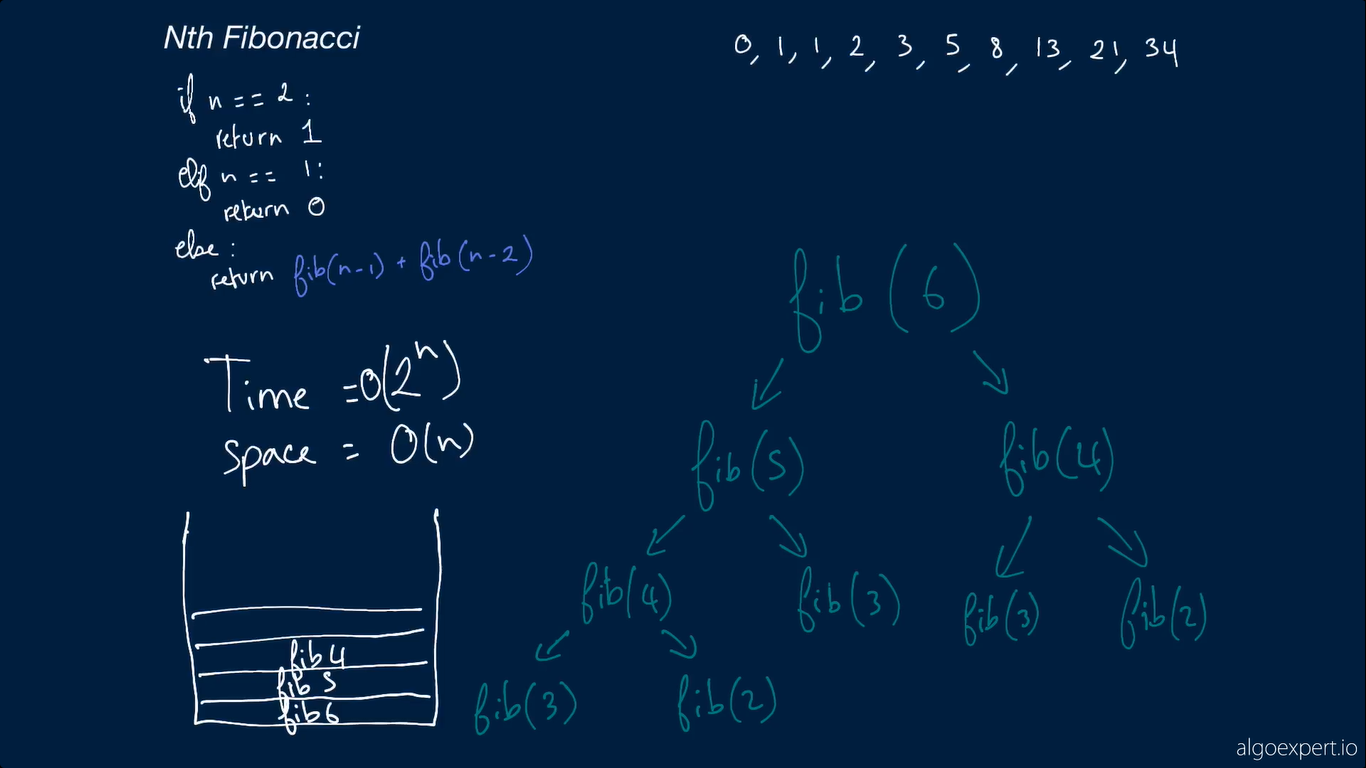 Nth Fibonacci
0, 1, 1, 2, 3, 5, 8, 13, 21, 34
if n == 2 :
return 1
elif n == 1:
return 0
else :
return fib(n-1) + fib(n-2)
Time = O(2^n)
space = O(n)
fib 4
fib 5
fib 6
fib (6)
fib(5) fib(4)
fib(4) fib(3) fib(3) fib(2)
fib(3) fib(2)
algoexpert.io